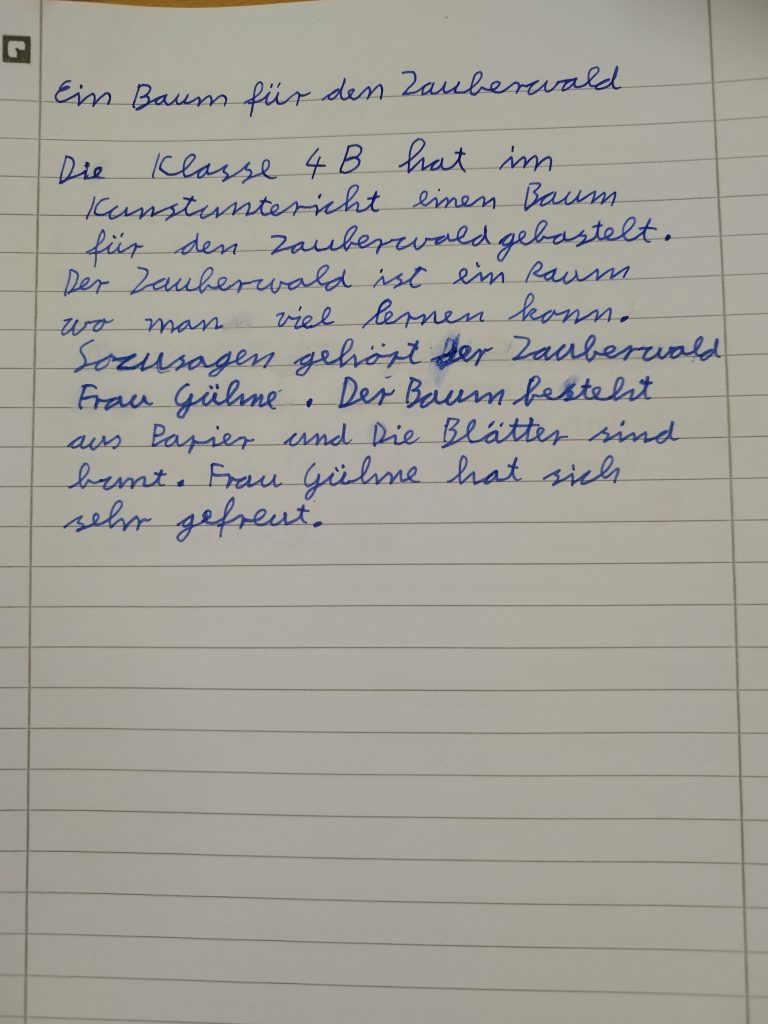 Ein Baum für den Zauberwald
Die Klasse 4 B hat im
Kunstunterricht einen Baum
für den Zauberwald gebastelt.
Der Zauberwald ist ein Raum
wo man viel lernen kann.
Sozusagen gehört der Zauberwald
Frau Gühne. Der Baum besteht
aus Papier und Die Blätter sind
bunt. Frau Gühne hat sich
sehr gefreut.